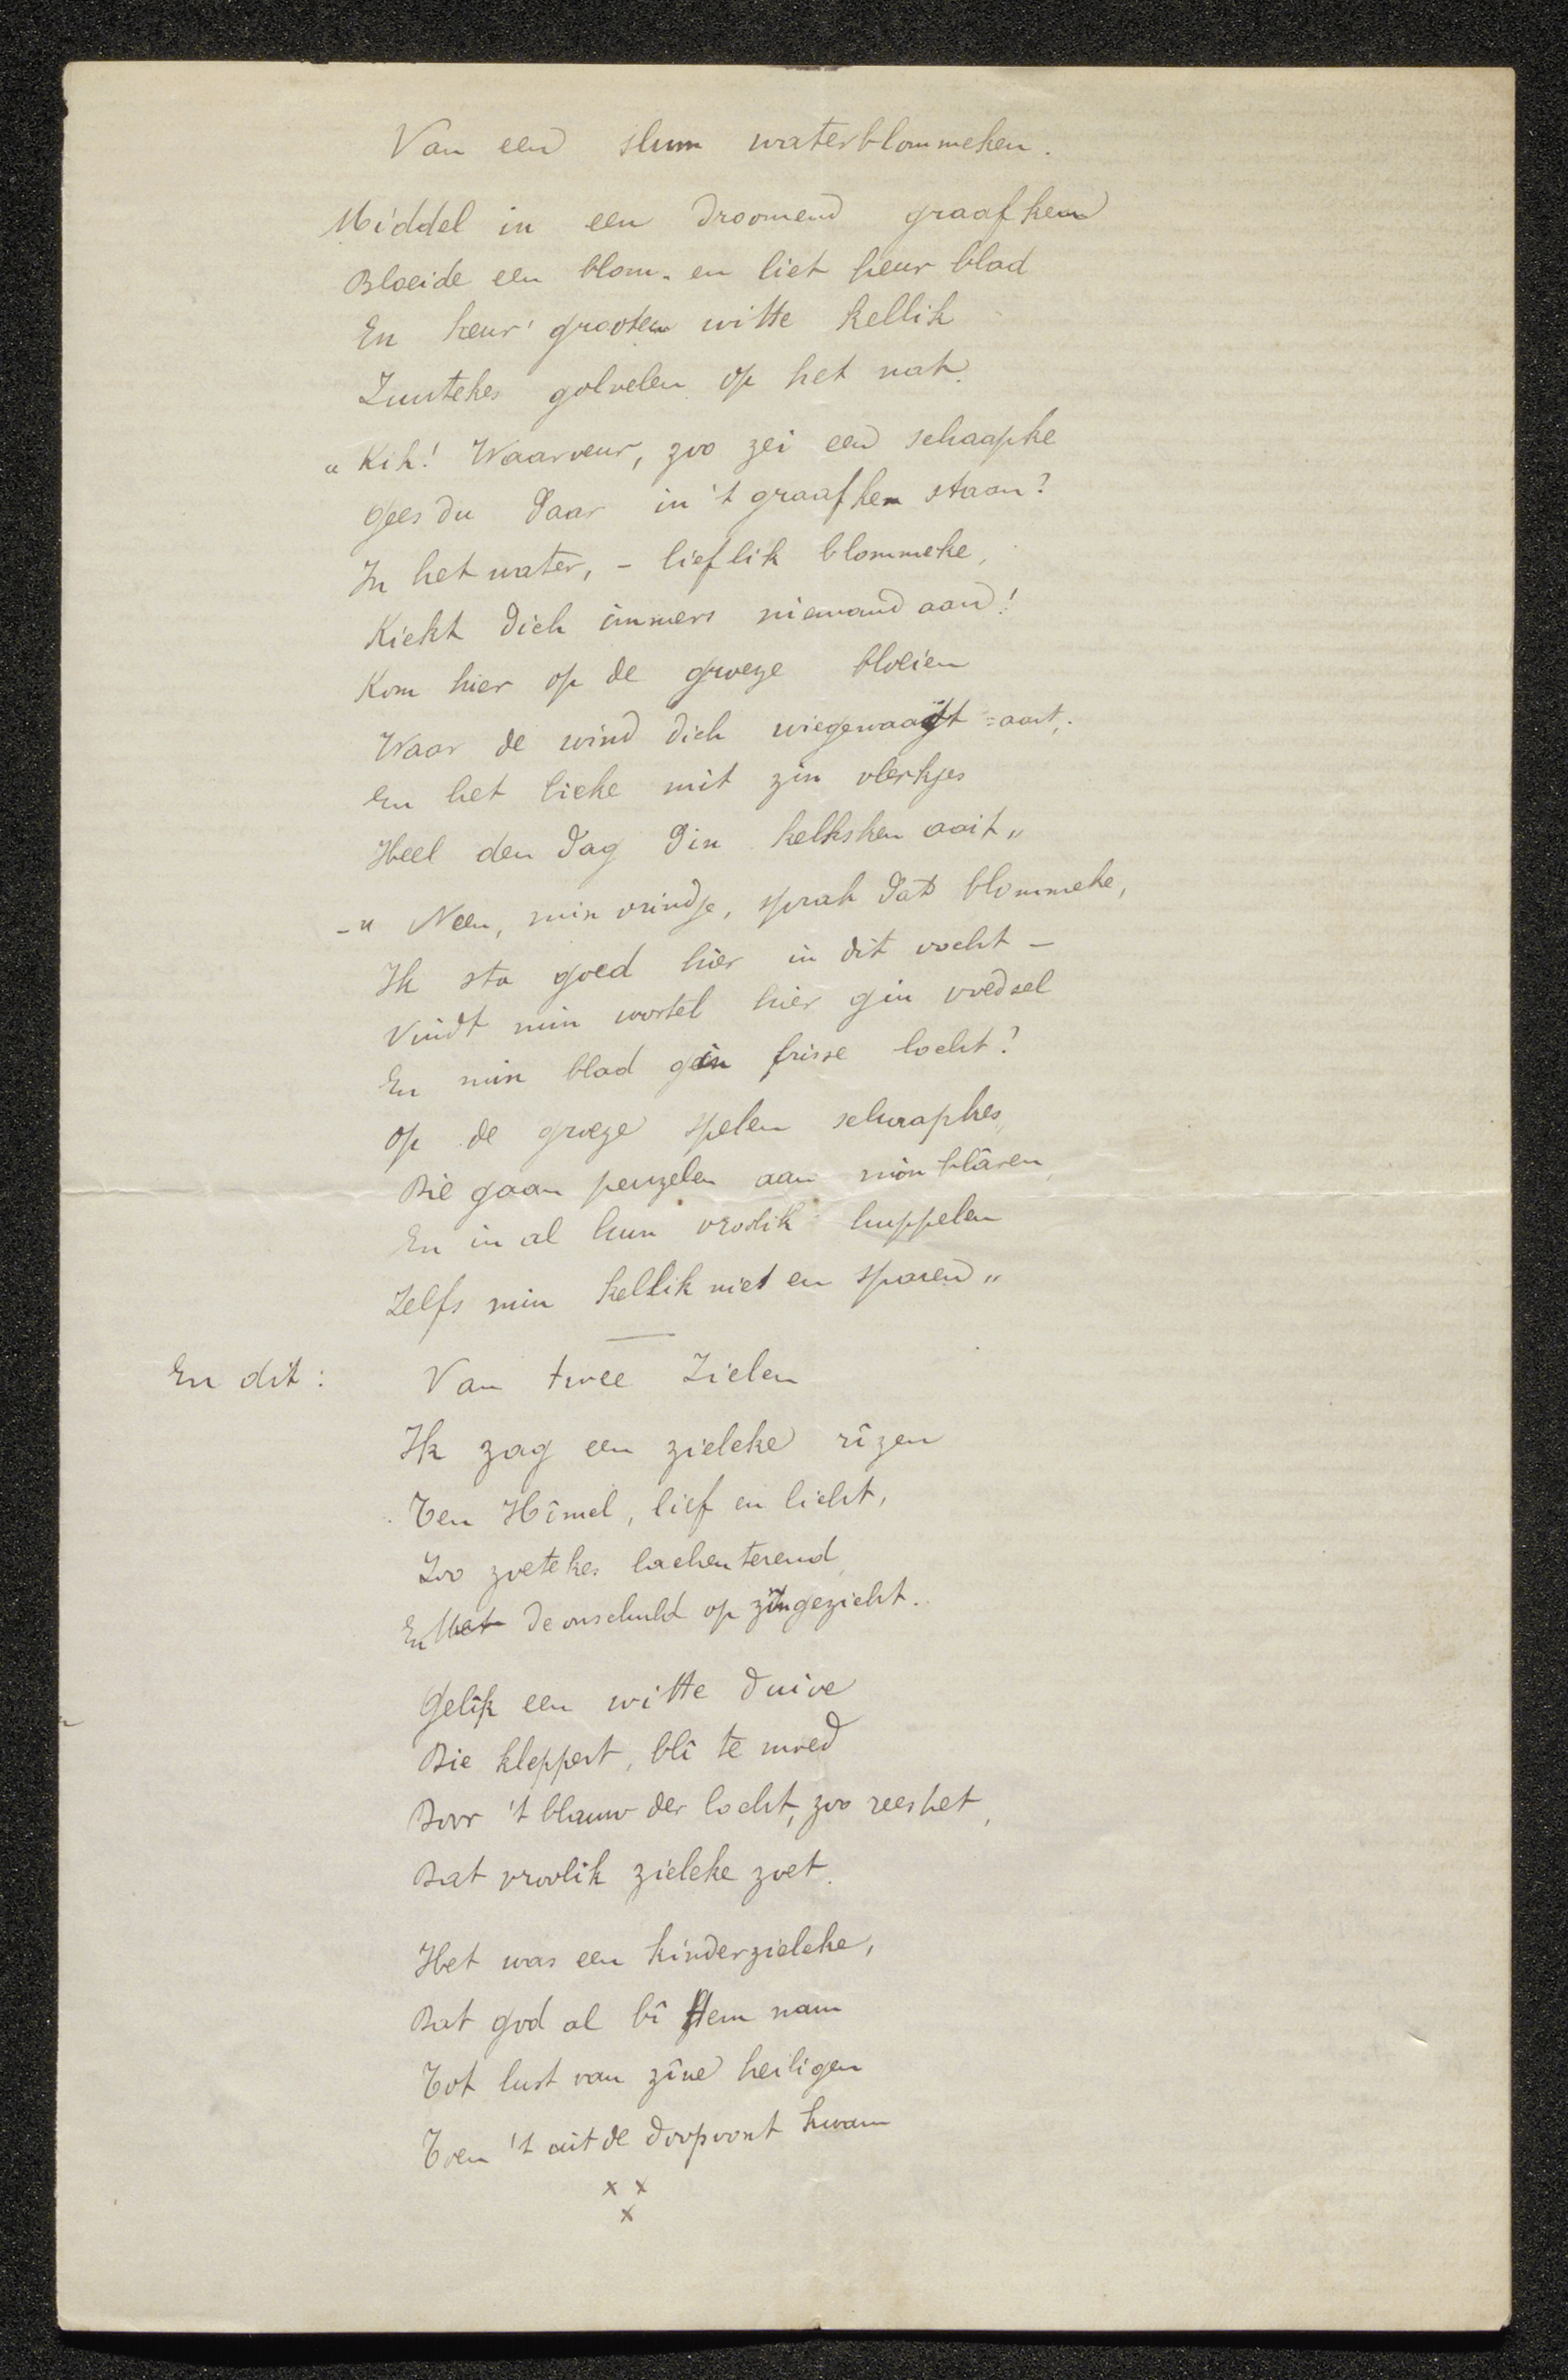 Van een slum waterblommeken.
Middel in een droomend graafken
Bloeide een blom. en liet heur blad
En heur' grooten witte kellik
Zuutekes golvelen op het nat.
„Kik! Waarveur, zoo zei een schaapke
Gees du daar in 't graafken staan?
In het water, - lieflik blommeke,
Kiekt dich immers niemand aan!
Kom hier op de groeze bloeien
Waar de wind dich wiegewaait = aait,
En het lieke mit zin vlerkjes
Heel den dag din kelksken aait„
-„ Neen, min vrindje, sprak dat blommeke,
Ik sta goed hier in dit vocht -
Vindt min wortel hier gin voedsel
En min blad gin frisse locht?
Op de groeze spelen schaapkes,
Die gaan peuzelen aan min blâren,
En in al hun vroolik huppelen
Zelfs min kellik niet en sparen„
En dit: Van twee Zielen
Ik zag een zieleke rîzen
Ten Hîmel, lief en licht,
Zoo zoetekes lachenterend,
En Met de onschuld op zîn gezicht.
Gelîk een witte duive
Die kleppert, blî te moed
Door 't blauw der locht, zoo rees het,
Dat vroolik zieleke zoet.
Het was een kinderzieleke,
Dat god al bî Hem nam
Tot lust van zîne heiligen
Toen 't uit de doopvont kwam
x x
x